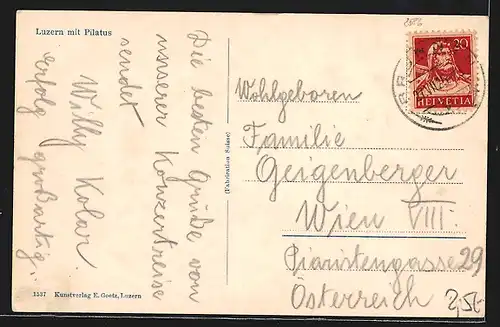 2586
Luzern mit Pilatus
Die besten Grüße von
unserer Konzertreise
sendet
Willy Kolar.
Erfolg großartig.
(Fabrication Suisse)
20
HELVETIA
Wohlgeboren
Familie
Geigenberger
Wien VIII.
Piaristengasse 29
Österreich
2,5-
1537 Kunstverlag E. Goetz, Luzern